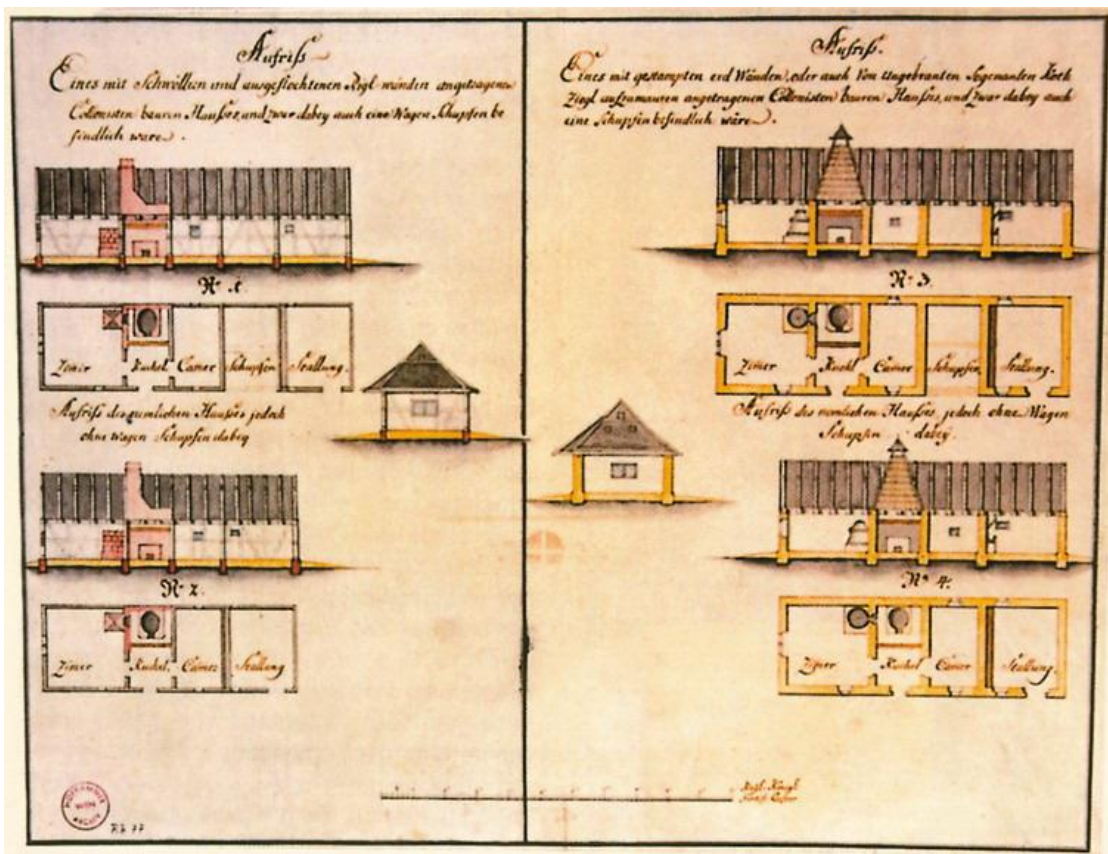 Aufriß
Eines mit Schwöllen und ausgeflochtenen Rigl-wänden angetragenen
Collonisten bauren Haußes, und zwar dabey auch eine Wagen Schupfen be
findlich wäre.
Nº 1.
Zimer Kuchel Camer Schupfen Stallung.
Aufriß des nemlichen Haußes jedoch
ohne Wagen Schupfen dabey
Nº 2.
Zimer Kuchel. Camer Stallung
HOFKAMMER
WIEN
ARCHIV
Aufriß.
Eines mit gestampten erd Wänden, oder auch Von Ungebranten Sogenanten Koth
Ziegl aufzumauren angetragenen Collonisten bauren Haußes, und zwar dabey auch
eine Schupfen befindlich wäre.
Nº 3.
Zimer Kuchl Camer Schupfen Stallung.
Aufriß des nemlichen Haußes, jedoch ohne Wagen
Schupfen dabey.
Nº 4.
Zimer Kuchel Camer Stallung.